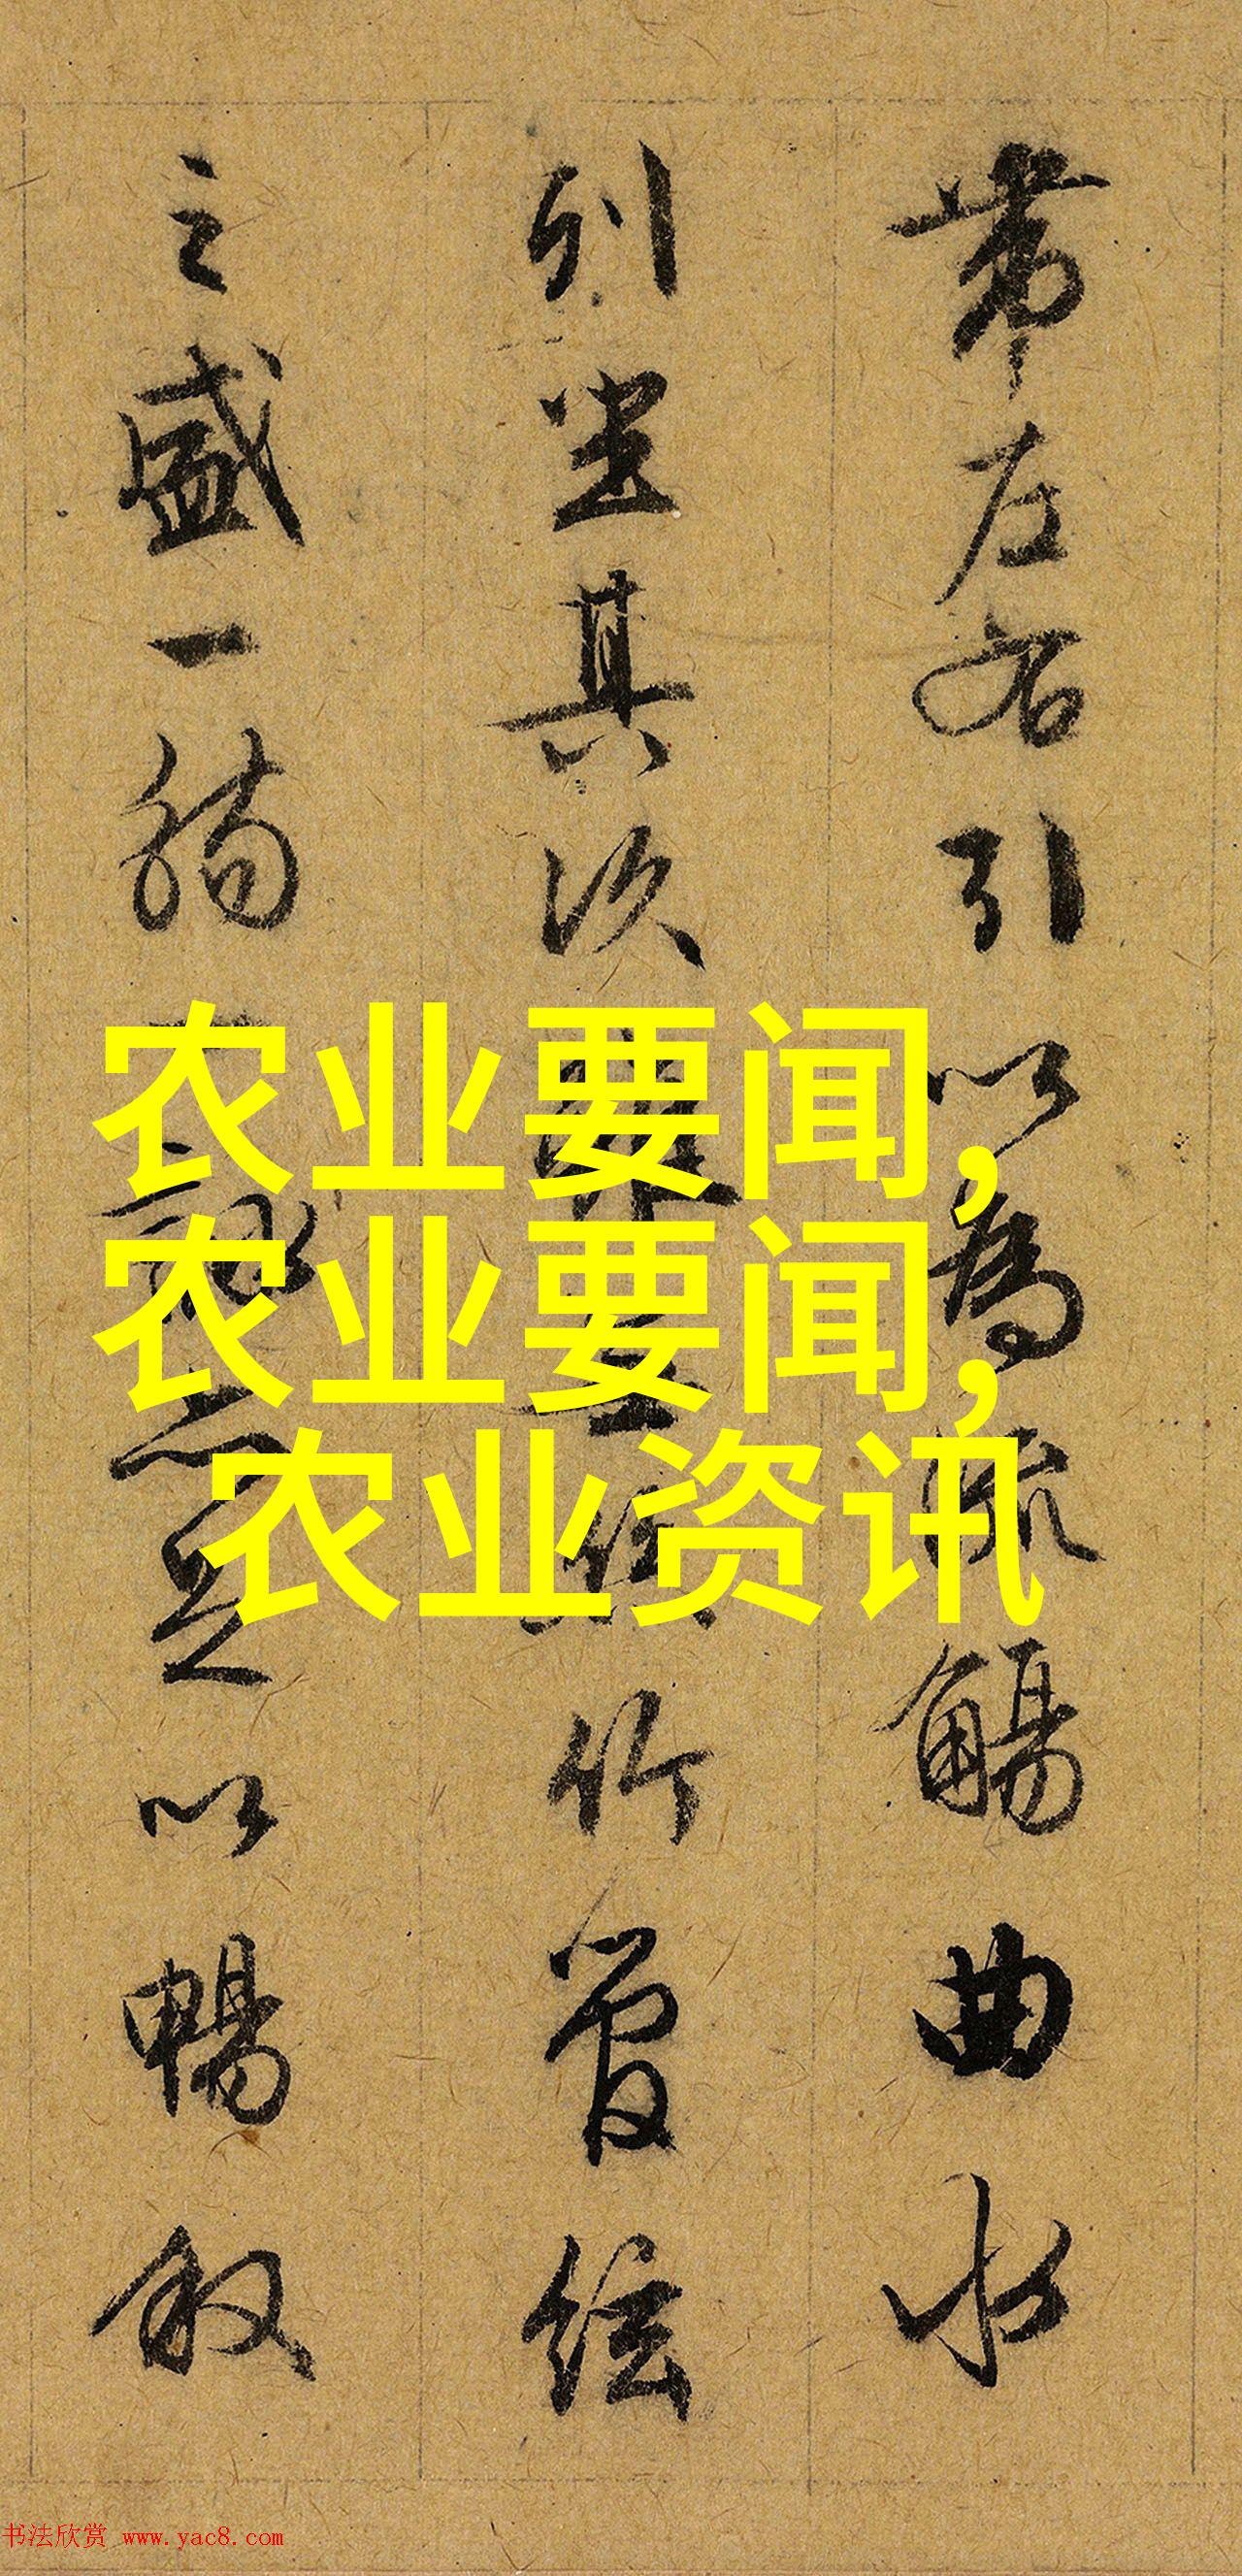 帶左右引以為流觴曲水
列坐其次雖無絲竹管絃
之盛一觴一詠亦足以暢敘
农业要闻,
农业要闻,
农业资讯
书法欣赏 www.yac8.com